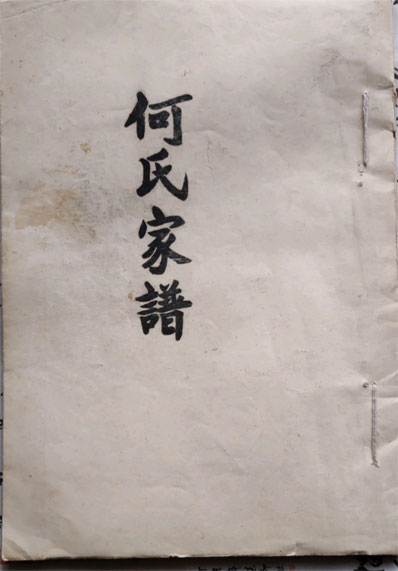 何氏家譜